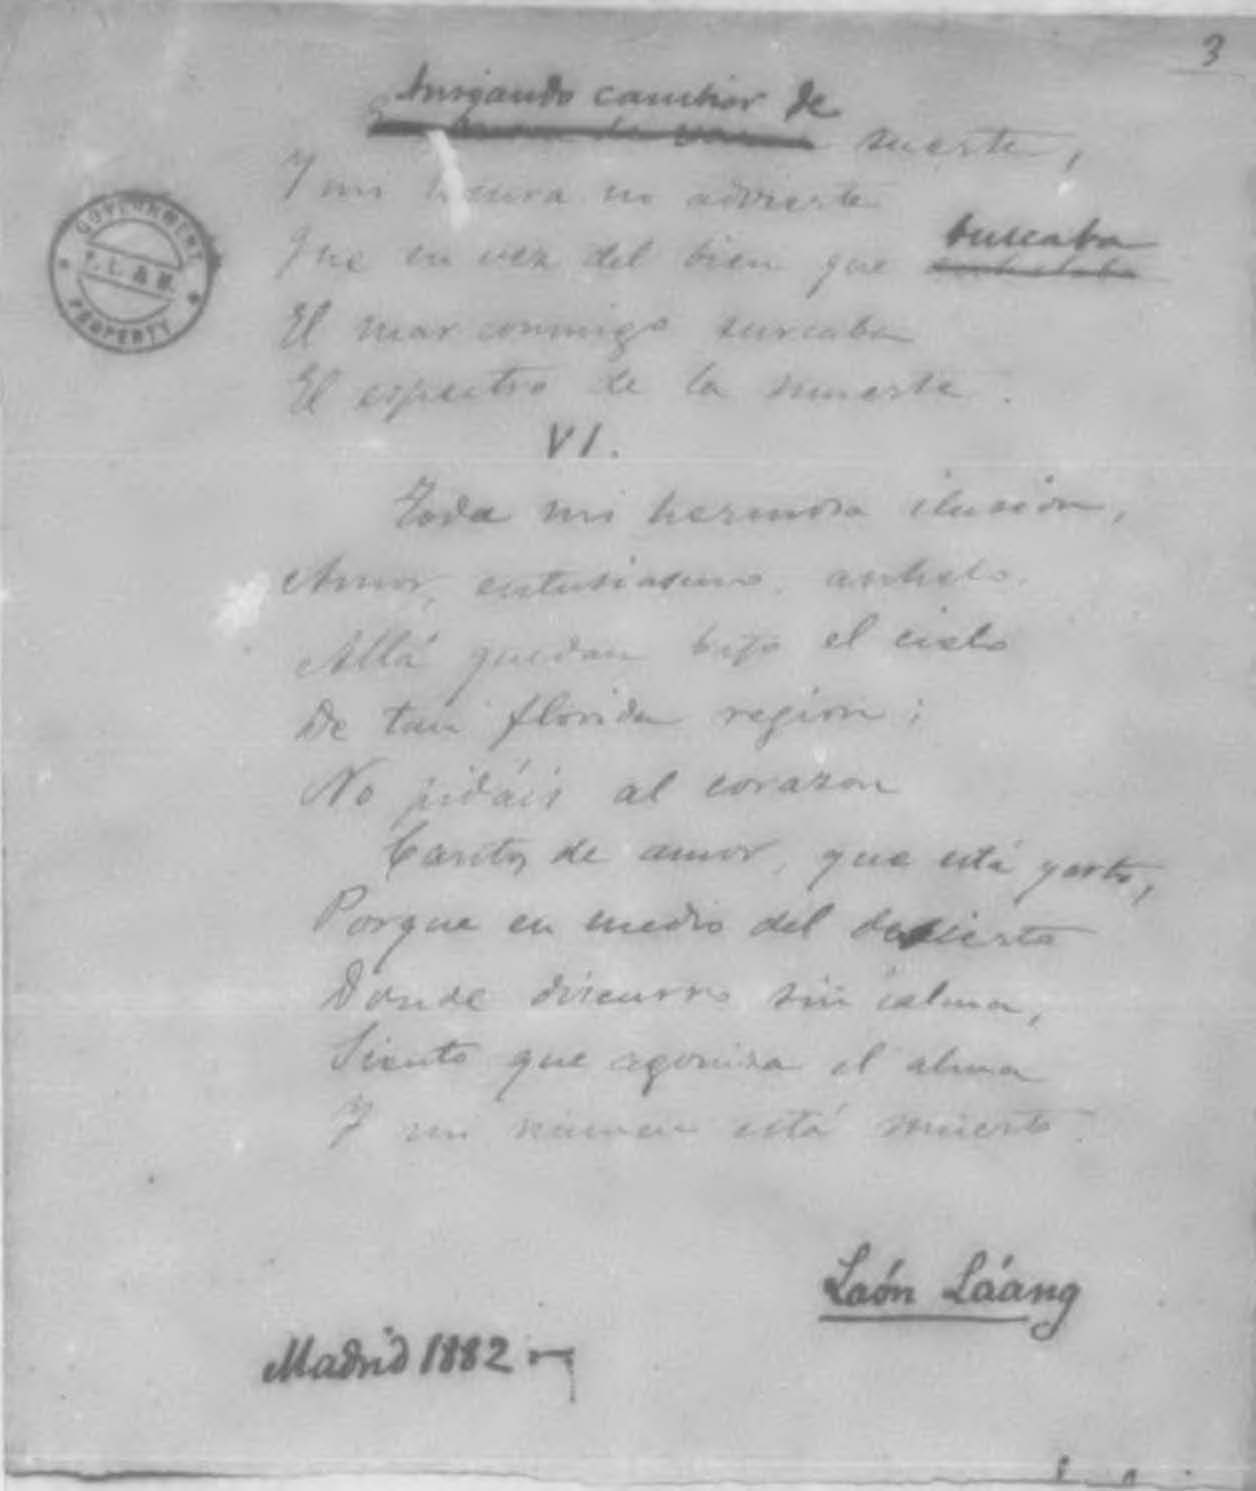 3
Ansiando cambiar de
suerte,
Y mi locura no advierte
Que en vez del bien que buscaba
El mar conmigo surcaba
El espectro de la muerte.
VI.
Toda mi hermosa ilusión,
Amor, entusiasmo, anhelo,
Allá quedan bajo el cielo
De tan florida region;
No pidáis al corazon
Cantos de amor, que está yerto,
Porque en medio del desierto
Donde discurro sin calma,
Siento que agoniza el alma
Y mi númen está muerto.
Laón Láang
Madrid 1882
GOVERNMENT
P. L. & M.
PROPERTY